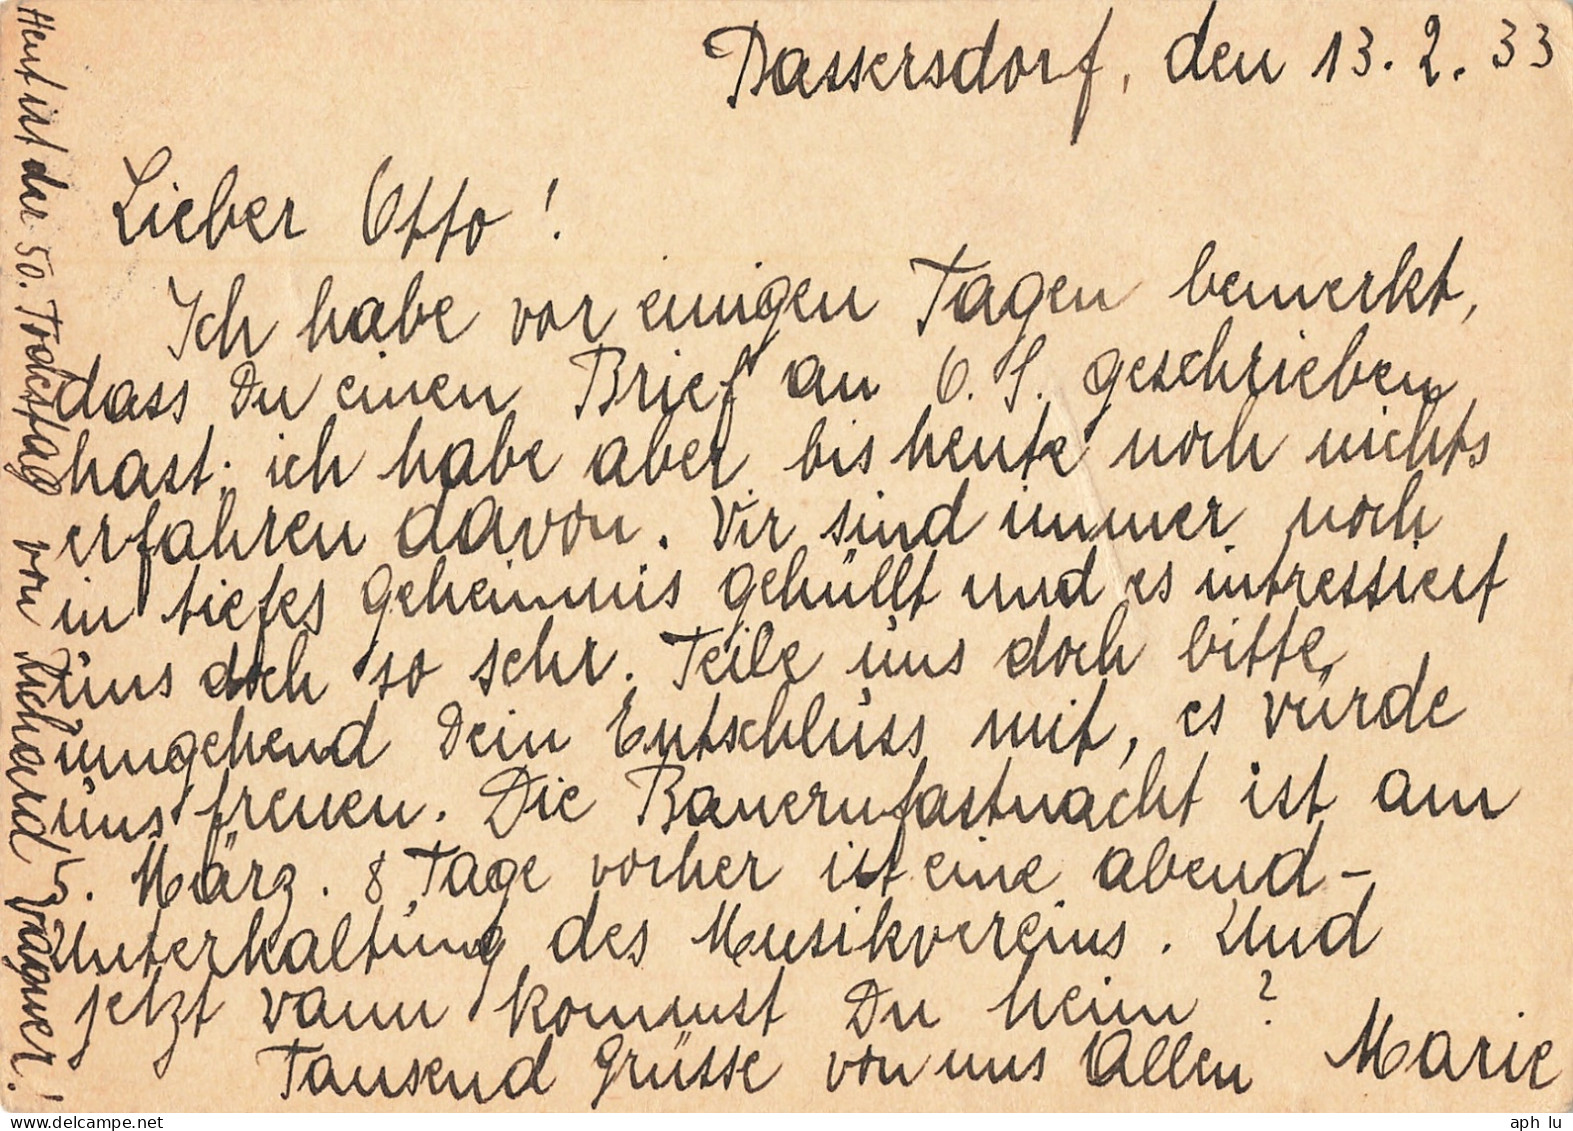 Bassersdorf, den 13. 2. 33
Lieber Otto!
Ich habe vor einigen Tagen bemerkt,
dass Du einen Brief an O. S. geschrieben
hast; ich habe aber bis heute noch nichts
erfahren davon. Wir sind immer noch
in tiefes geheimnis gehüllt und es intressiert
uns doch so sehr. Teile uns doch bitte
umgehend Dein Entschluss mit, es würde
uns freuen. Die Bauernfastnacht ist am
5. März. 8 Tage vorher ist eine abend-
Unterhaltung des Musikvereins. Und
jetzt wann kommst Du heim?
Tausend Grüsse von uns Allen Marie
Heut ist der 50. Todestag von Richard Wagner!
aph lu